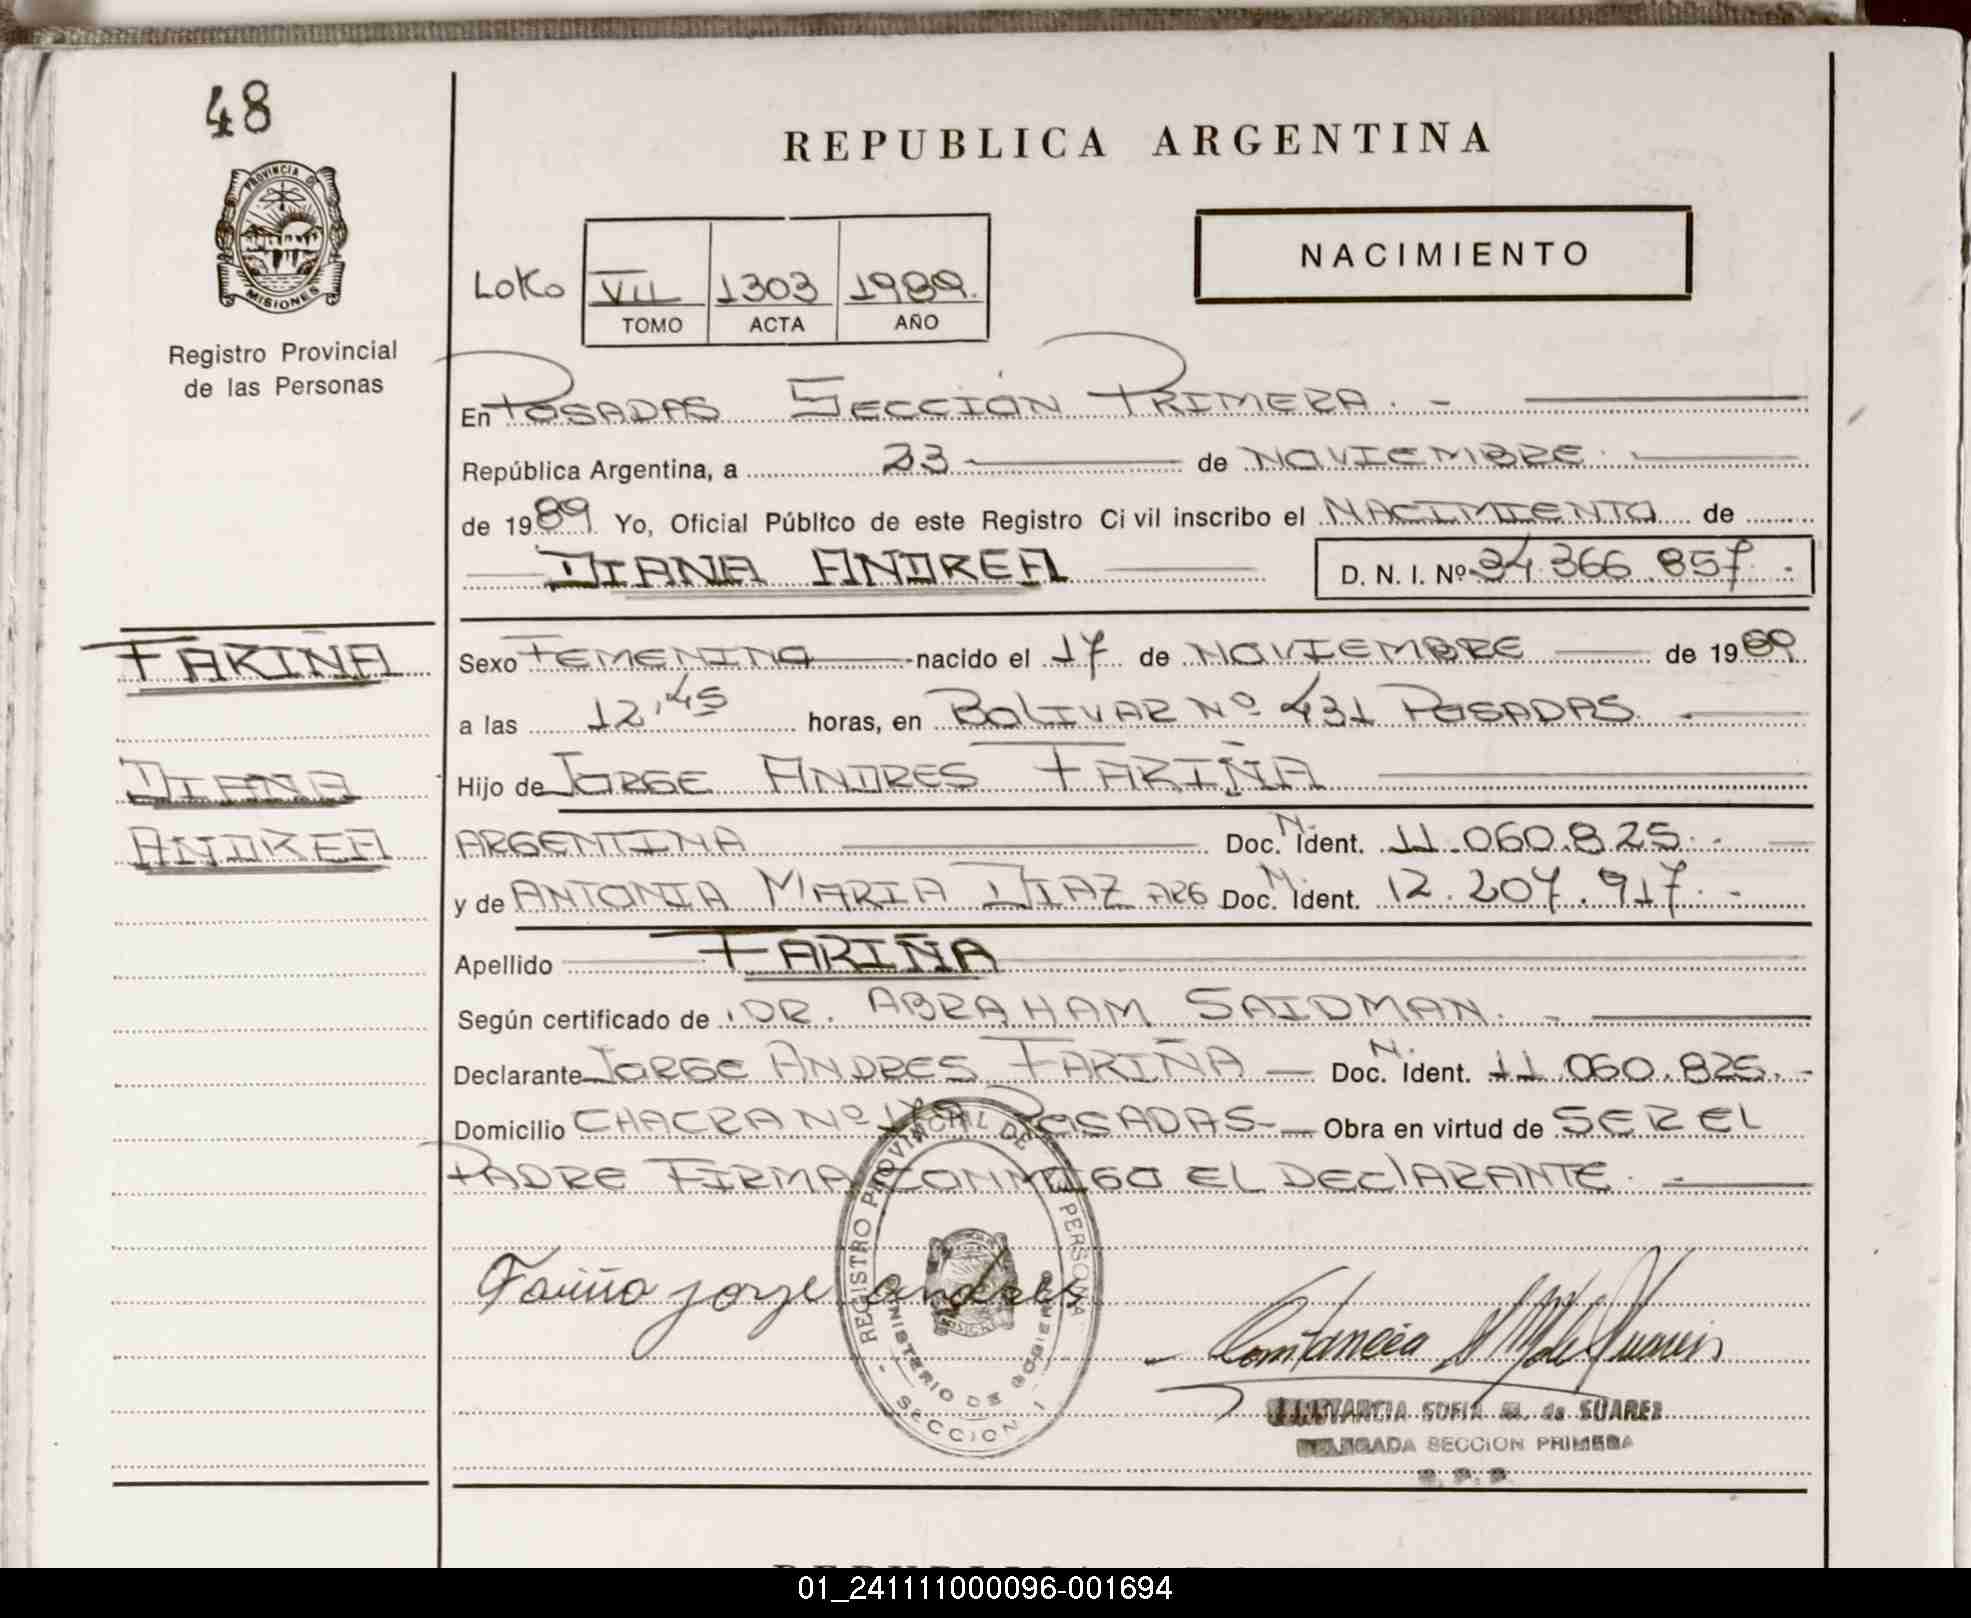 48
REPUBLICA ARGENTINA
PROVINCIA DE
MISIONES
Registro Provincial
de las Personas
NACIMIENTO
VII 1303 1989.
TOMO ACTA AÑO
En POSADAS SECCIÓN PRIMERA. -
República Argentina, a 23 de NOVIEMBRE
de 1989 Yo, Oficial Público de este Registro Civil inscribo el NACIMIENTO de
DIANA ANDREA D. N. I. Nº 34.366.857.-
FARIÑA
DIANA
ANDREA
Sexo FEMENINO nacido el 17 de NOVIEMBRE de 1989
a las 12,45 horas, en BOLIVAR Nº 431 POSADAS
Hijo de JORGE ANDRES FARIÑA
ARGENTINA Doc. N. Ident. 11.060.825.-
y de ANTONIA MARIA DIAZ ARG Doc. N. Ident. 12.207.917.-
Apellido FARIÑA
Según certificado de DR. ABRAHAM SAIDMAN. -
Declarante JORGE ANDRES FARIÑA Doc. N. Ident. 11.060.825.-
Domicilio CHACRA Nº POSADAS- Obra en virtud de SER EL
PADRE FIRMA CONMIGO EL DECLARANTE.
Fariña jorge andres
REGISTRO PROVINCIAL DE PERSONA
MINISTERIO DE GOBIERNO
SECCION 1
Constancia de Suarez
CONSTANCIA SOFIA M. de SUAREZ
DELEGADA SECCION PRIMERA
R. P. P.
01_241111000096-001694